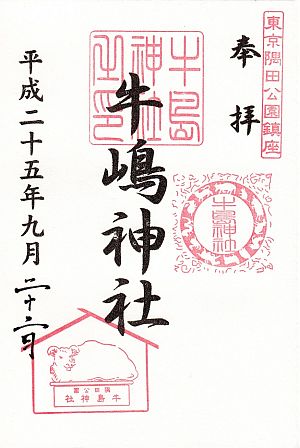 東京隅田公園鎮座
奉拝
牛嶋神社
牛島神社之印
牛島神社
平成二十五年九月二十二日
隅田公園
牛島神社